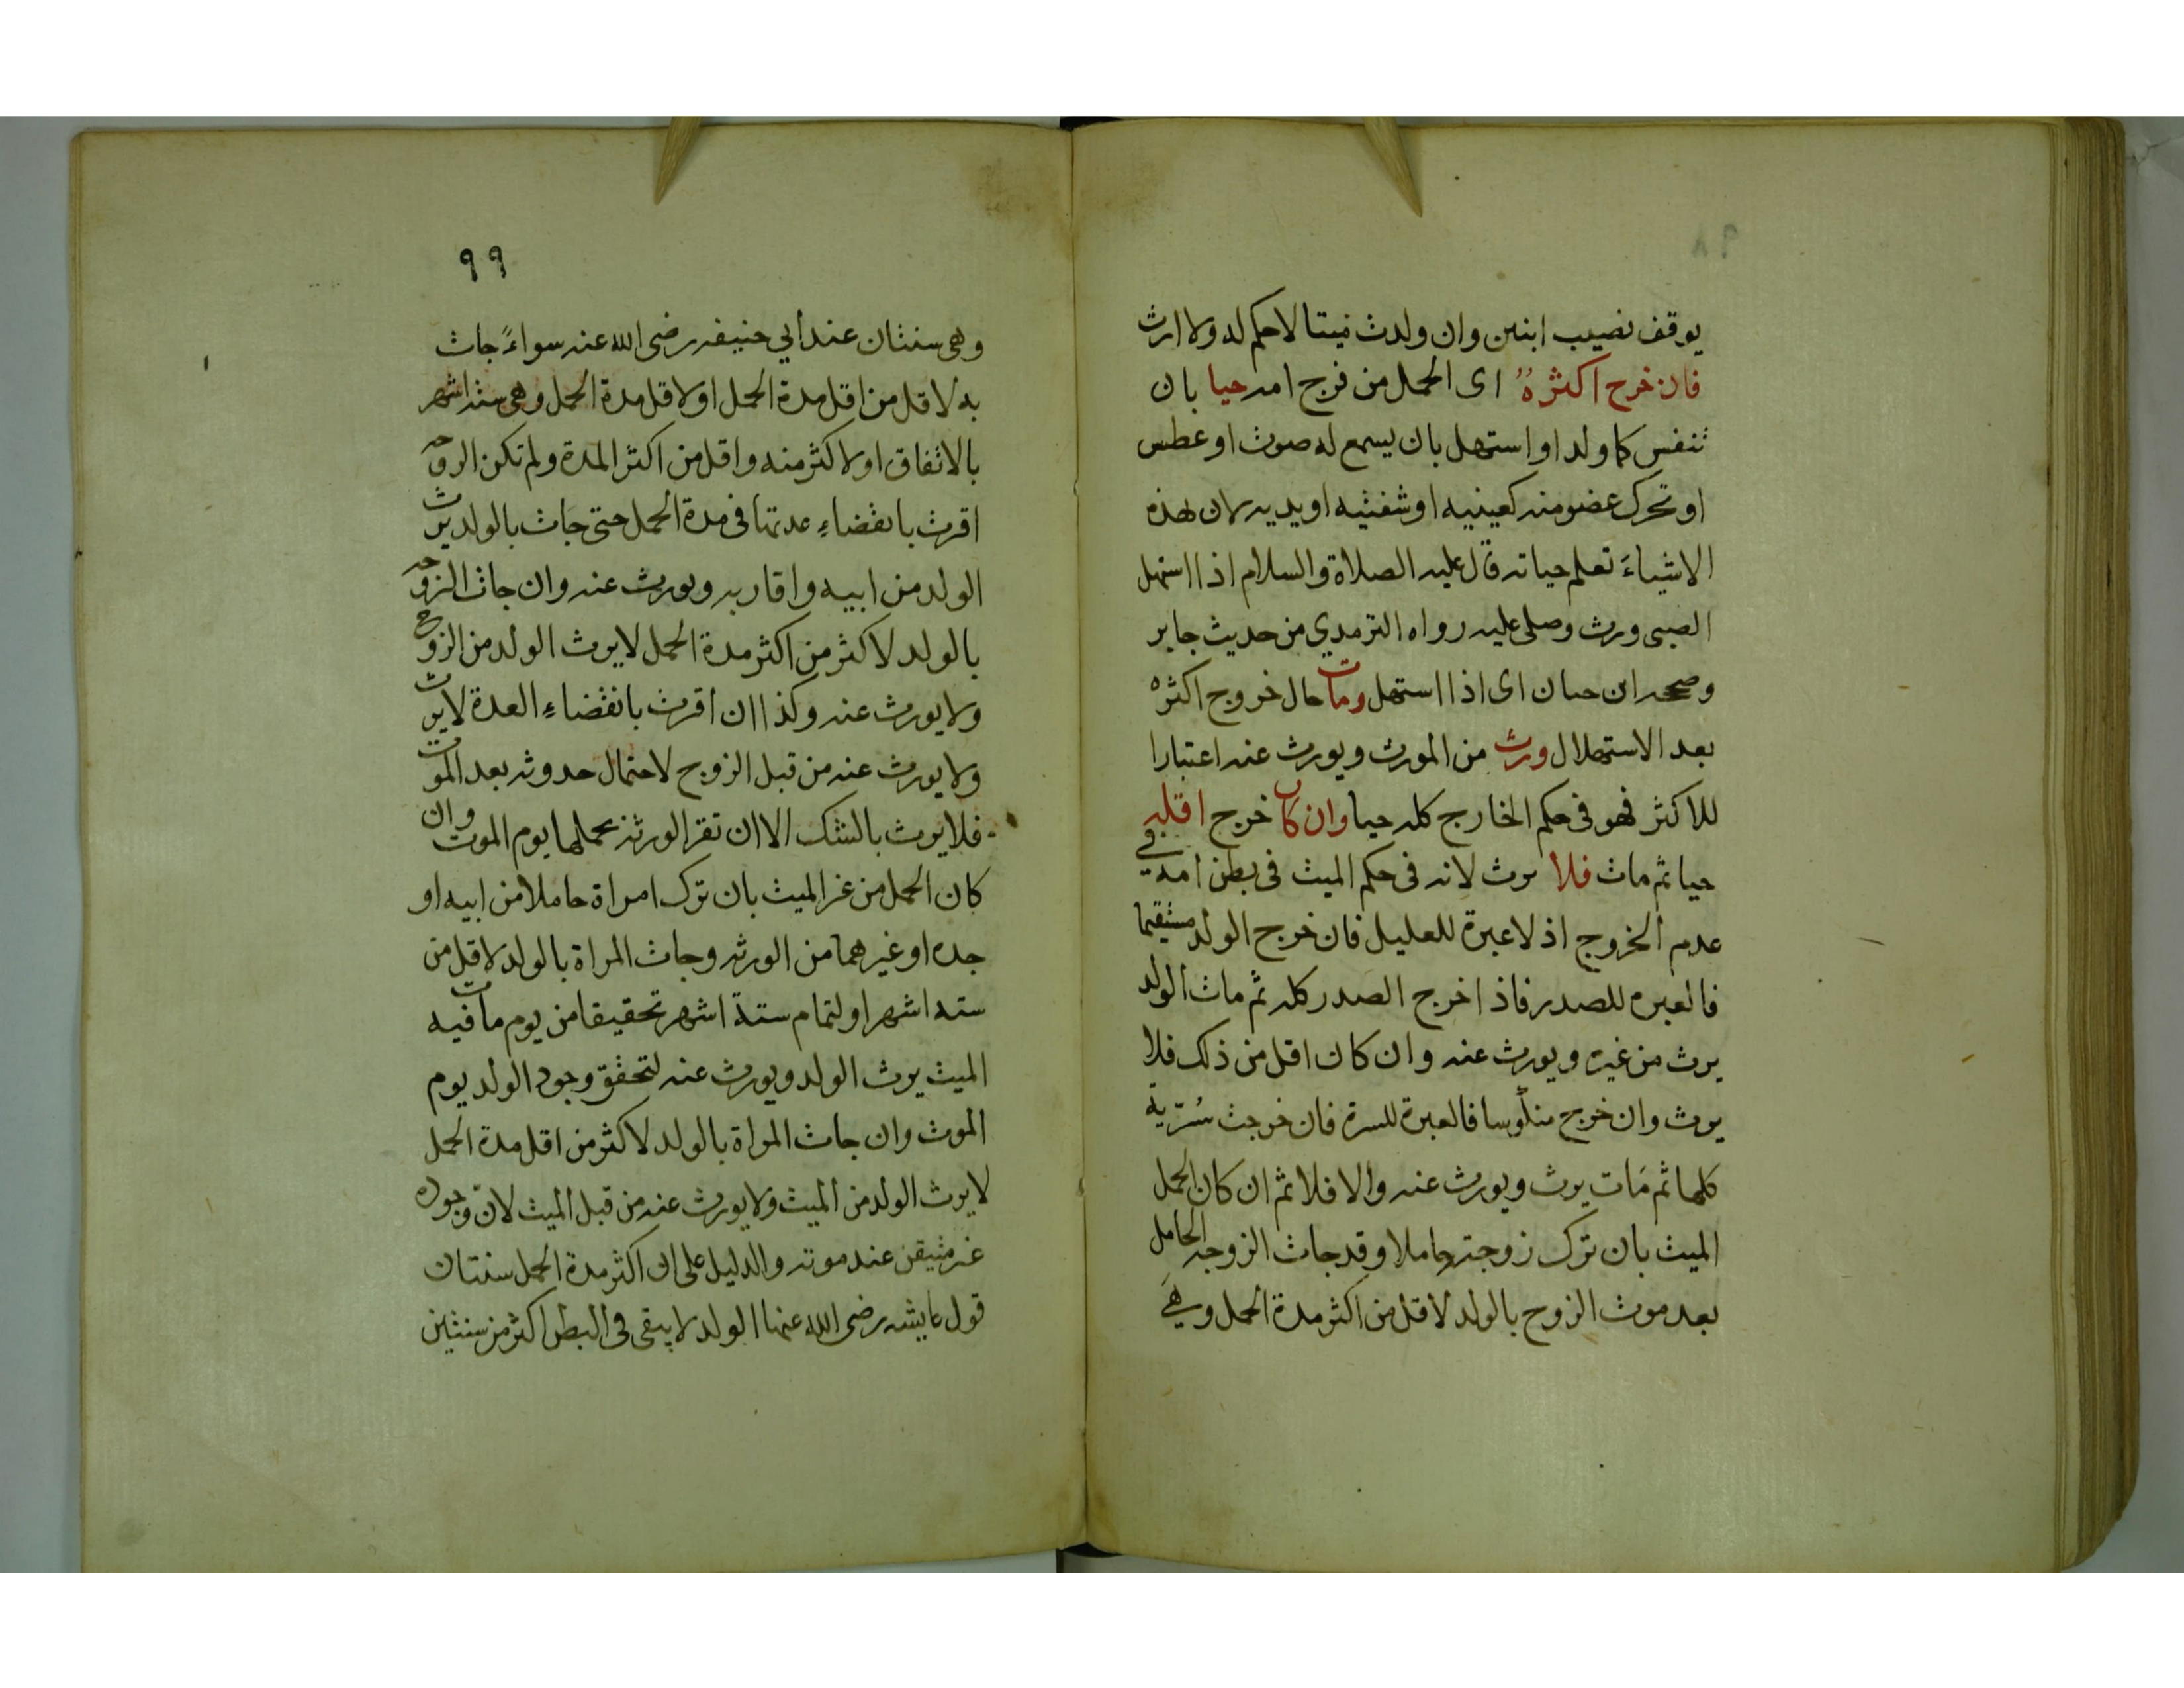 ٩٨
يوقف نصيب ابنين وان ولدت ميتا لا حكم له ولا ارث
فان خرج اكثره اى الحمل من فرج امه حيا بان
تنفس كما ولد او استهل بان يسمع له صوت او عطس
او تحرك عضو منه كعينيه او شفتيه او يديه لان بهذه
الاشياءَ تعلم حياته قال عليه الصلاة والسلام اذا استهل
الصبى ورث وصلى عليه رواه الترمدي من حديث جابر
وصححه ابن حبان اى اذا استهل ومات حال خروج اكثره
بعد الاستهلال ورث من المورث ويورث عنه اعتبارا
للاكثر فهو فى حكم الخارج كله حيا وان كان خرج اقله
حيا ثم مات فلا يرث لانه فى حكم الميت فى بطن امه فى
عدم الخروج اذ لا عبرة للعليل فان خرج الولد مستقيما
فالعبره للصدر فاذا خرج الصدر كله ثم مات الولد
يرث من غيره ويورث عنه وان كان اقل من ذلك فلا
يرث وان خرج منكوسا فالعبرة للسرة فان خرجت سُرّيه
كلها ثم مَات يرث ويورث عنه والا فلا ثم ان كان الحمل
الميت بان ترك زوجته حاملا وقد جاث الزوجه الحامل
بعد موت الزوج بالولد لاقل من اكثر مدة الحمل وهَي
٩٩
وهى سنتان عند أبي حنيفه رضى الله عنه سواءً جاث
به لاقل من اقل مدة الحمل او لاقل مدة الحمل وهى ستة اشهر
بالاتفاق او لاكثر منه واقل من اكثر المدة ولم تكن الزوجه
اقرت بانقضاءِ عدتها فى مدة الحمل حتى جاث بالولد يرث
الولد من ابيه واقاربه ويورث عنه وان جاث الزوجه
بالولد لاكثر من اكثر مدة الحمل لا يرث الولد من الزوج
ولا يورث عنه وكذا ان اقرت بانقضاءِ العدة لا يرث
ولا يورث عنه من قبل الزوج لاحتمال حدوثه بعد الموت
فلا يرث بالشك الا ان تقر الورثة بحملها يوم الموت وان
كان الحمل من غير الميت بان ترك امراة حاملا من ابيه او
جده او غيرهما من الورثه وجاث المراة بالولد لاقل من
سته اشهر او لتمام ستة اشهر تحقيقا من يوم مات فيه
الميت يرث الولد ويورث عنه لتحقق وجود الولد يوم
الموت وان جاث المراة بالولد لاكثر من اقل مدة الحمل
لا يرث الولد من الميت ولا يورث عنه من قبل الميت لانّ وجوده
غير متيقن عند موته والدليل على ان اكثر مدة الحمل سنتان
قول عايشه رضى الله عنها الولد لا يبقى فى البطن اكثر من سنتين